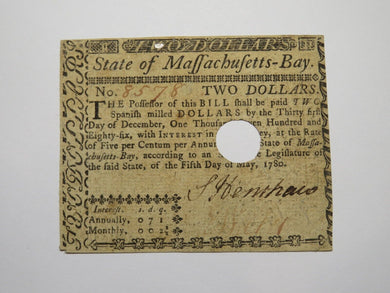 TWO DOLLARS
State of Massachusetts-Bay.
No. 8578 TWO DOLLARS.
THE Possessor of this BILL shall be paid TWO
Spanish milled DOLLARS by the Thirty first
Day of December, One Thous Hundred and
Eighty-six, with INTEREST in ey, at the Rate
of Five per Centum per Annu State of Massa-
chusetts-Bay, according to an Legislature of
the said State, of the Fifth Day of May, 1780.
S Henshaw
Interest. s. d. q.
Annually, 0 7 1
Monthly, 0 0 2